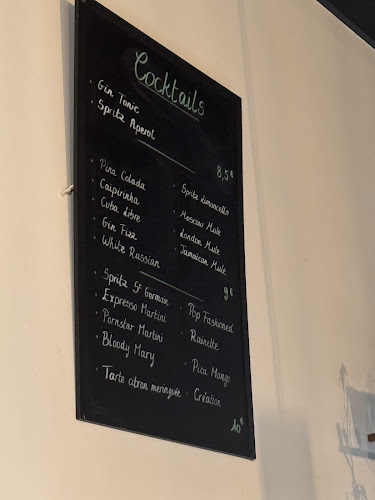 Cocktails
· Gin Tonic
· Spritz Aperol
8,5€
· Pina Colada
· Caipirinha
· Cuba Libre
· Gin Fizz
· White Russian
· Spritz Limoncello
· Moscow Mule
· London Mule
· Jamaican Mule
9€
· Spritz St German
· Expresso Martini
· Pornstar Martini
· Bloody Mary
· Tarte citron meringuée
· Pop Fashioned
· Rounette
· Pica Mango
· Création
10€